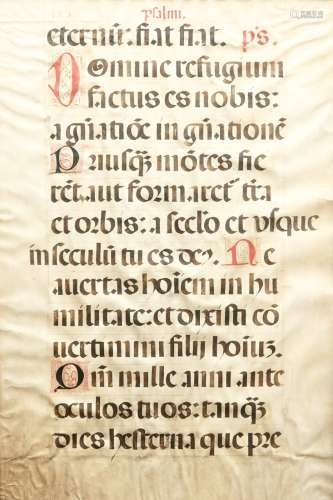 psalmi.
eternū: fiat fiat. ps.
Domine refugium
factus es nobis:
a gn̄atiōe in gn̄ationē
Priusq̄ mōtes fie
rēt. aut formaret̄ t̄ra
et orbis: a sec̄lo et vsque
in seculū tu es de⁹. Ne
auertas hoīem in hu
militate: et dixisti cō
uertimini filij hoīuꝫ.
Qm̄ mille anni ante
oculos tuos: tanq̄ꝫ
dies hesterna que pre